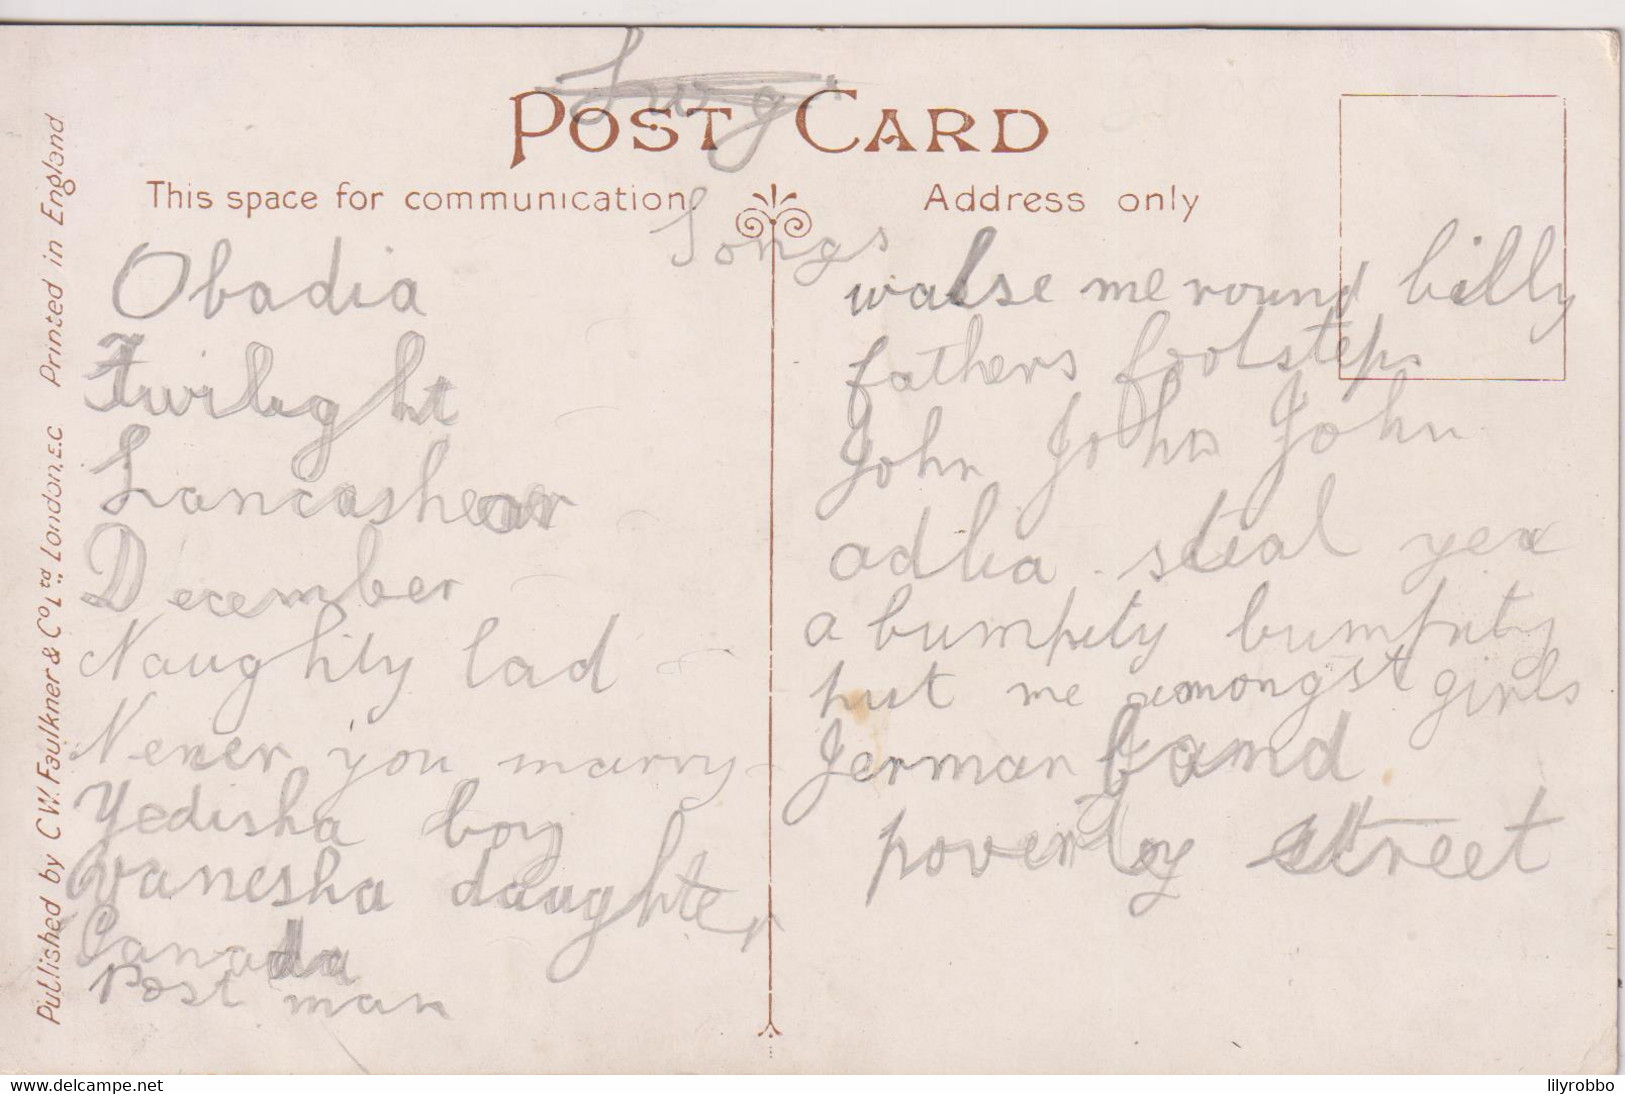 POST CARD
This space for communication.
Address only
Songs
Obadia
Twilight
Lancashear
December
Naughty lad
Never you marry
Yedisha boy
vanesha daughter
Canada
Post man
walse me round billy
fathers footsteps
John John John
adlia steal yex
a bumpity bumpity
put me amongst girls
German band
poverty street
Published by C.W. Faulkner & Co Ltd., London, E.C Printed in England
www.delcampe.net
lilyrobbo